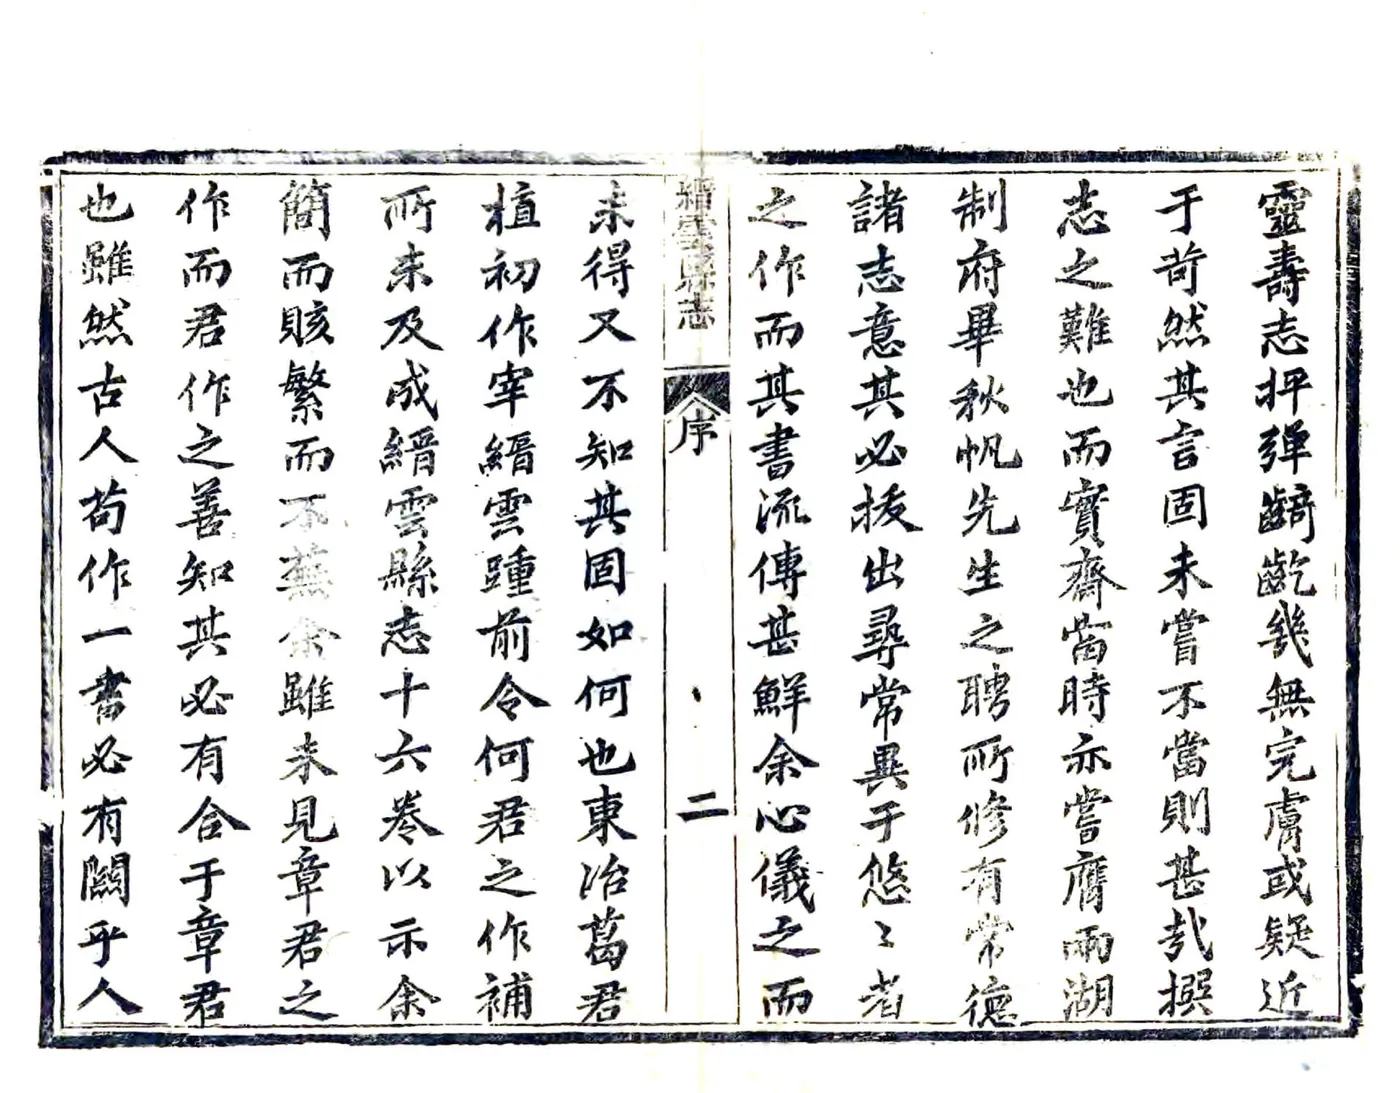 靈壽志抨彈齮齕幾無完膚或疑近
于苛然其言固未嘗不當則甚哉撰
志之難也而實齋當時亦嘗膺兩湖
制府畢秋帆先生之聘所修有常德
諸志意其必拔出尋常異于悠〻者
之作而其書流傳甚鮮余心儀之而
縉雲縣志
序
二
未得又不知其固如何也東冶葛君
植初作宰縉雲踵前令何君之作補
所未及成縉雲縣志十六卷以示余
簡而賅繁而不蕪余雖未見章君之
作而君作之善知其必有合于章君
也雖然古人苟作一書必有關乎人